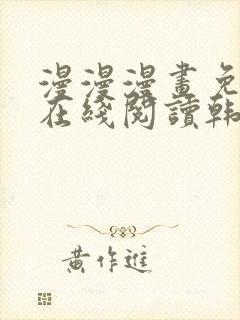 漫漫漫畫免
在綫閱讀韩
黄作進